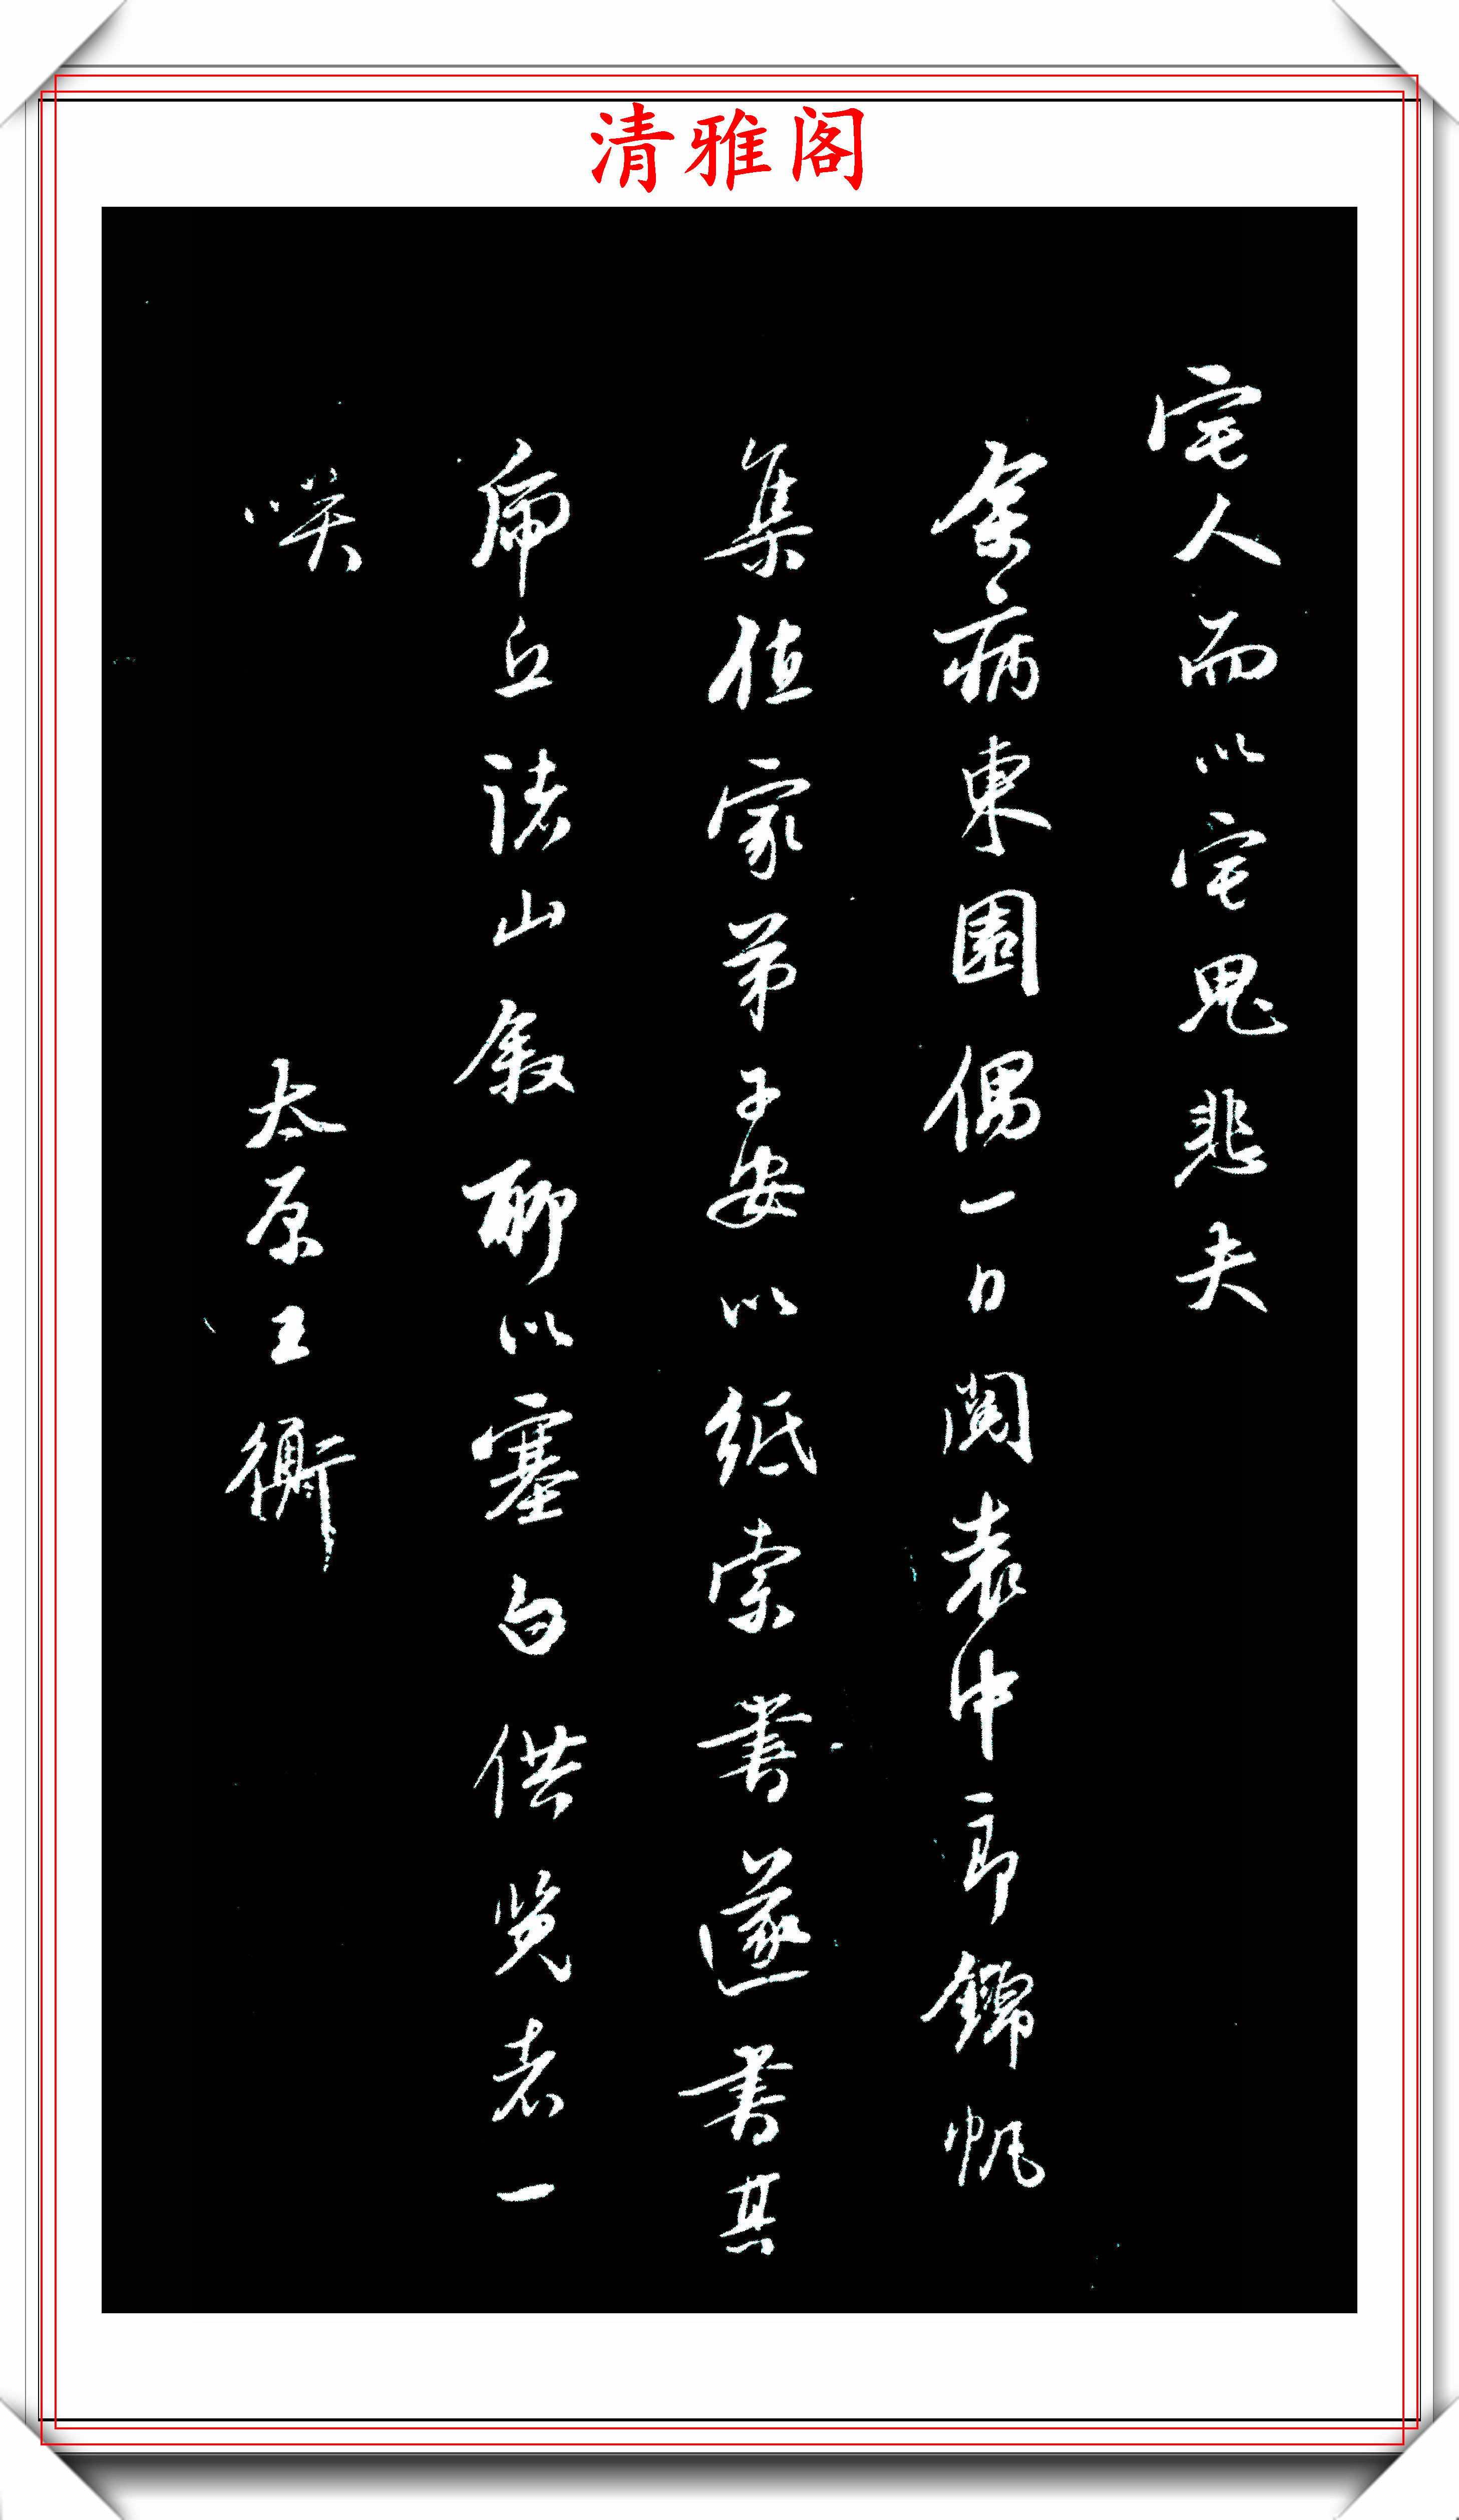 清雅阁
宅人而以宅鬼悲夫
余病東園偶一日閱袁中郎錦帆
集值家弟子安以紙索書遂書其
虎丘諸山叙聊以塞白供覽者一
笑
太原王衡